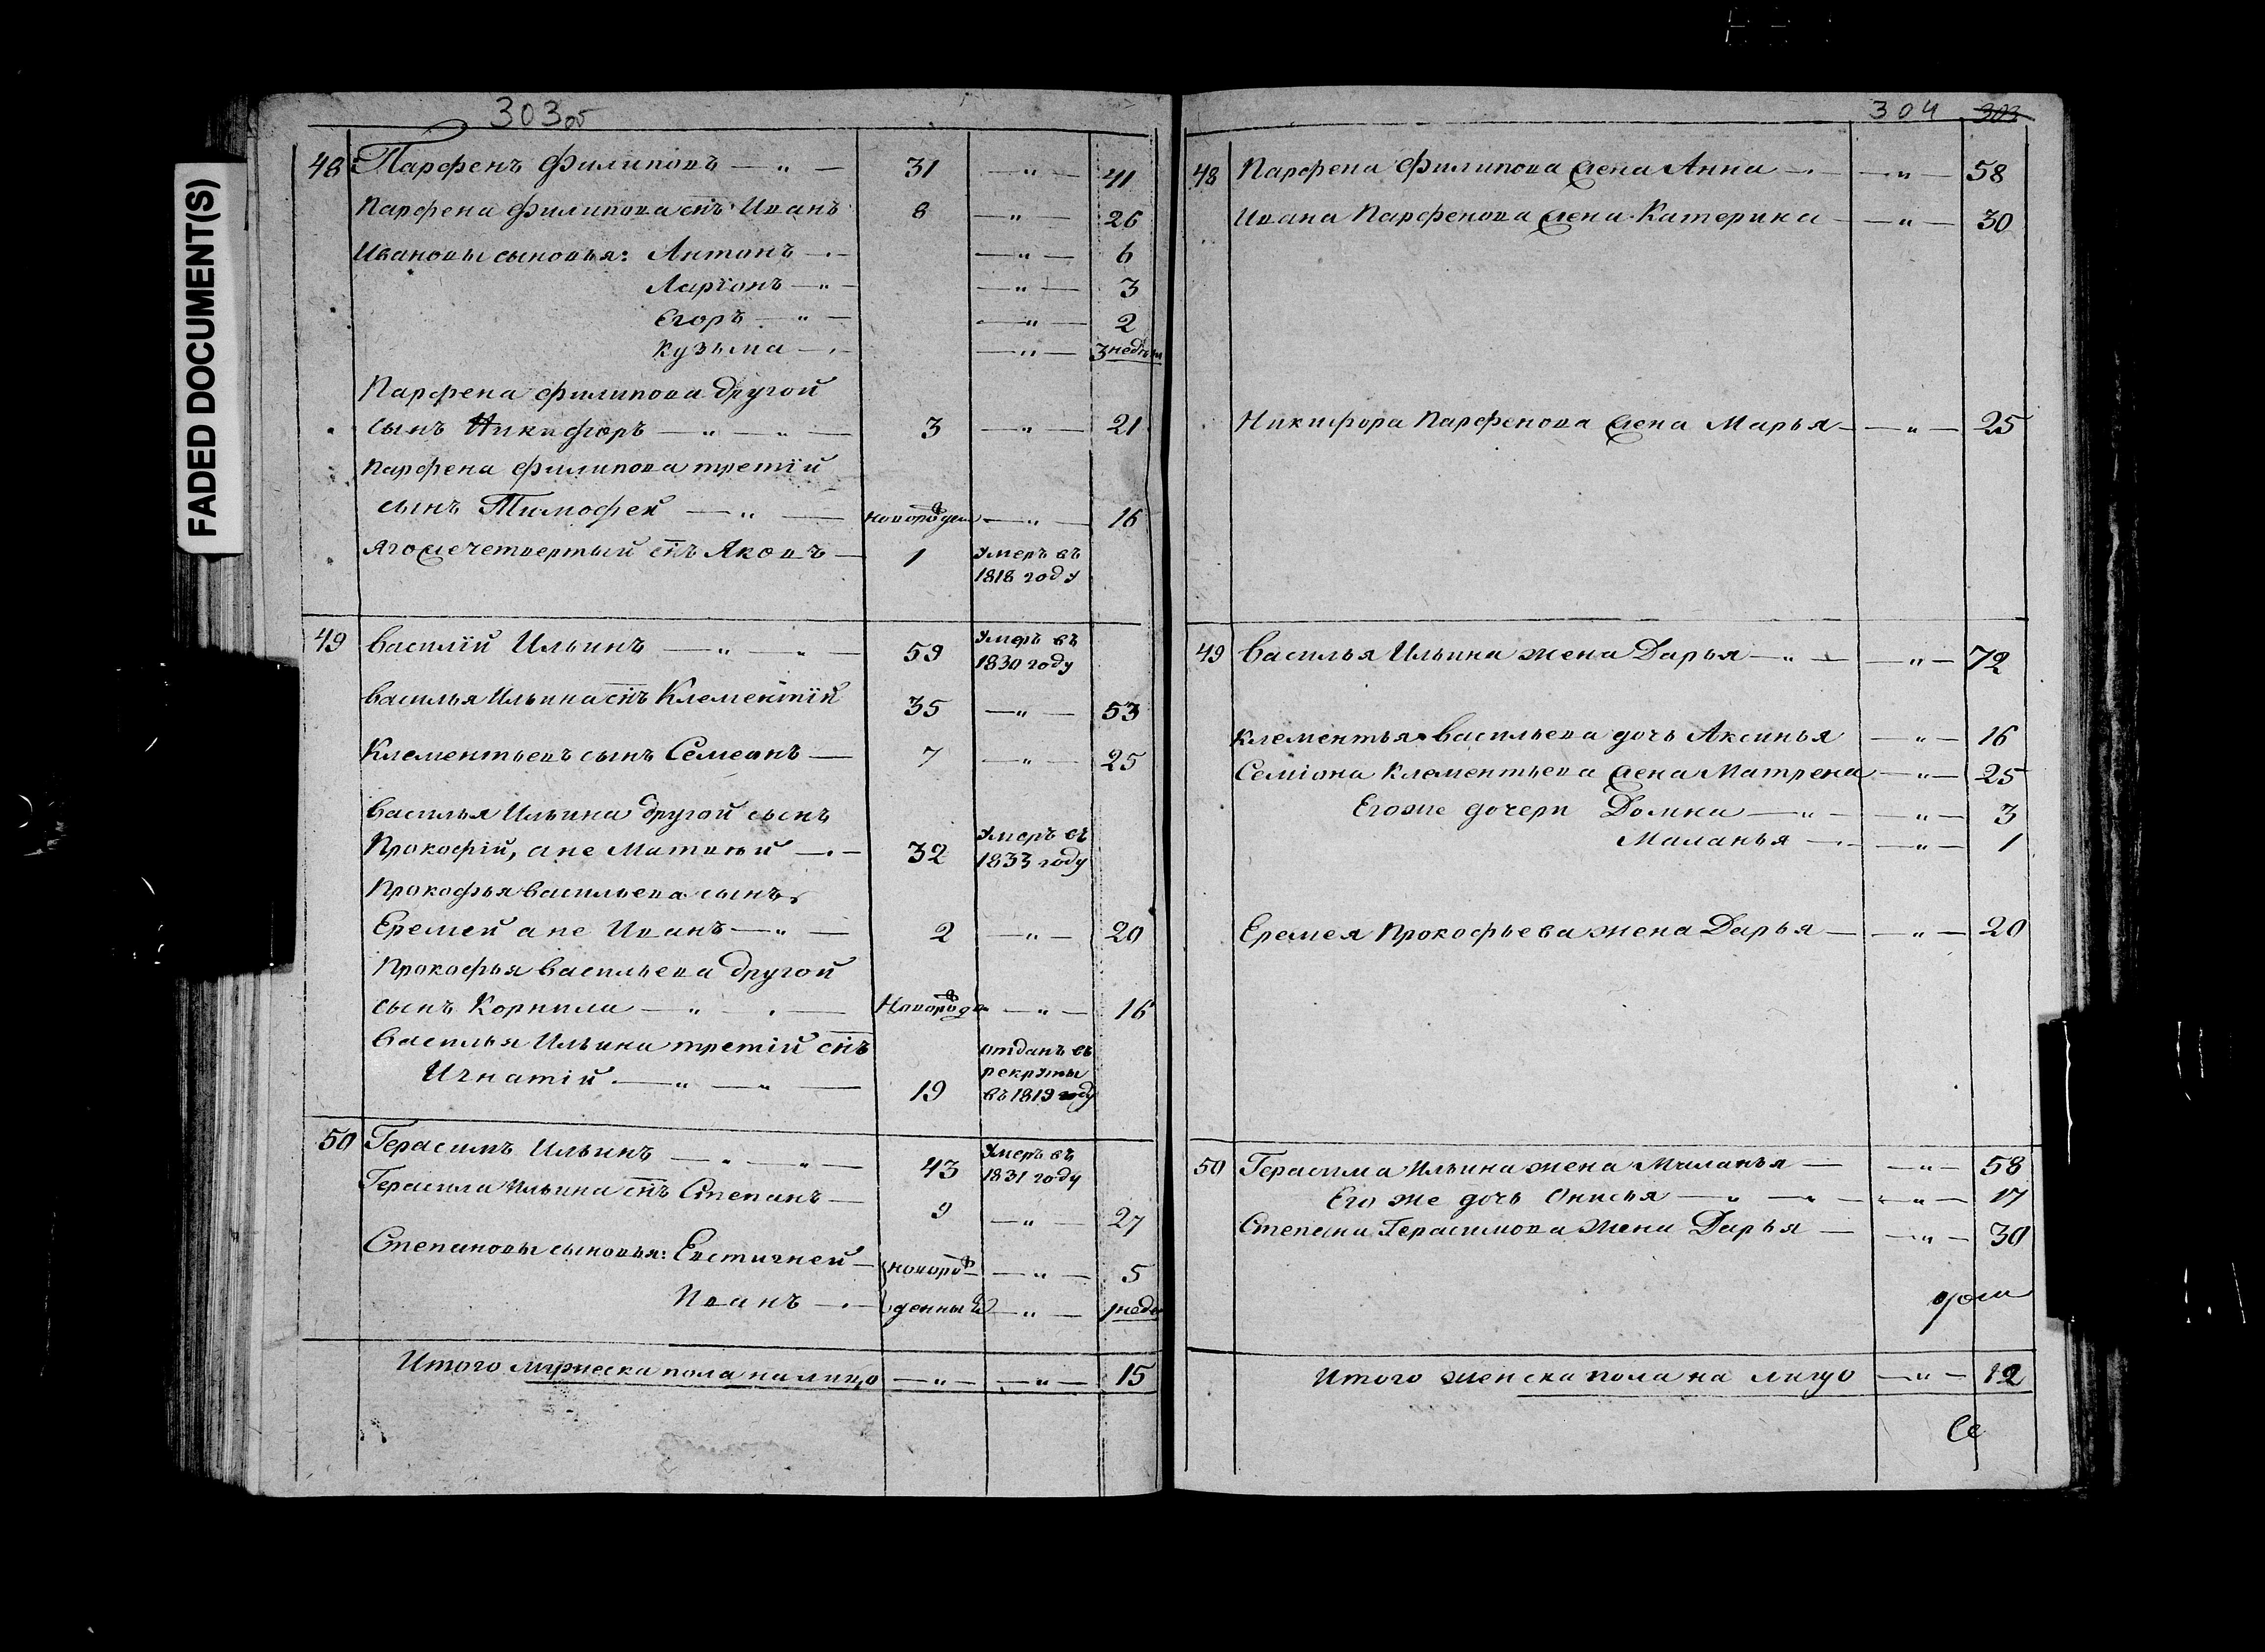 FADED DOCUMENT(S)
303об
48 Парфенъ Филиповъ — „ — 31 — „ — 41
Парфена Филипова снъ Иванъ 8 — „ — 26
Ивановы сыновья: Антонъ — „ — 6
Ларіонъ — „ — — „ — 3
Егоръ — „ — — „ — 2
Кузьма — „ — — „ — 3 недели
Парфена Филипова другой
сынъ Никифоръ — „ — „ — 3 — „ — 21
Парфена Филипова третій
сынъ Тимофей — „ — новорожден — „ — 16
Яго же четвертый снъ Яковъ — 1 Умеръ въ
1818 году
49 Василій Ильинъ — „ — „ — 59 Умеръ въ
1830 году
Василья Ильина снъ Клементій 35 — „ — 53
Клементьевъ сынъ Семеонъ — 7 — „ — 25
Василья Ильина другой сынъ
Прокофій, а не Матвей — „ — 32 Умеръ въ
1833 году
Прокофья Васильева сынъ
Еремей а не Иванъ — „ — 2 — „ — 20
Прокофья Васильева другой
сынъ Корнила — „ — „ — Новорожде — „ — 16
Василья Ильина третій снъ
Игнатій — „ — „ — 19 отданъ въ
рекруты
въ 1819 году
50 Герасимъ Ильинъ — „ — „ — 43 Умеръ въ
1831 году
Герасима Ильина снъ Степанъ — 9 — „ — 27
Степановы сыновья: Евстигней — новорож — „ — 5
Иванъ — „ — денный — „ — 1 неде
Итого мужеска пола на лицо — „ — — „ — 15
304 303
48 Парфена Филипова жена Анна — „ — — „ — 58
Ивана Парфенова жена Катерина — — „ — 30
Никифора Парфенова жена Марья — — „ — 25
49 Василья Ильина жена Дарья — „ — — „ — 72
Клементья Васильева дочь Аксинья — „ — 16
Семіона Клементьева жена Матрена — „ — 25
Егоже дочери Домна — „ — — „ — 3
Маланья — „ — — „ — 1
Еремея Прокофьева жена Дарья — — „ — 20
50 Герасима Ильина жена Маланья — — „ — 58
Его же дочь Онисья — „ — „ — — „ — 17
Степана Герасимова жена Дарья — — „ — 30
Итого женска пола на лицо — „ — 12